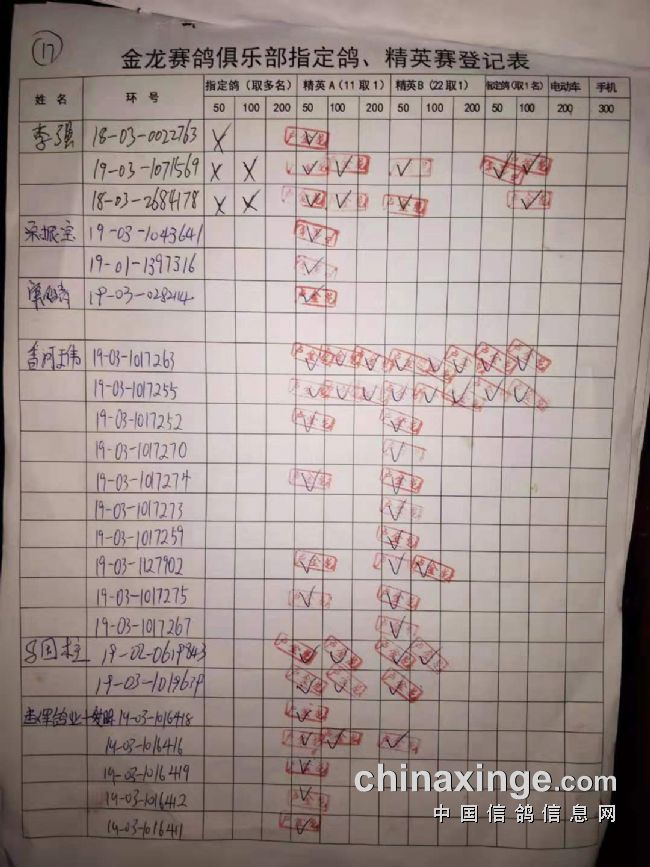 17
金龙赛鸽俱乐部指定鸽、精英赛登记表
姓名 环号 指定鸽（取多名） 精英A（11取1） 精英B（22取1） 指定鸽（取1名） 电动车 手机
50 100 200 50 100 200 50 100 200 50 100 200 300
李强 18-03-0022763
19-03-1071569
18-03-2684178
梁振宝 19-03-1043641
19-01-1397316
19-03-0282114
香河王伟 19-03-1017263
19-03-1017255
19-03-1017252
19-03-1017270
19-03-1017274
19-03-1017273
19-03-1017259
19-03-1127902
19-03-1017275
19-03-1017267
马国柱 19-02-0619843
19-03-1019639
19-03-1016418
19-03-1016416
19-03-1016419
19-03-1016412
19-03-1016411
chinaxinge.com
中国信鸽信息网